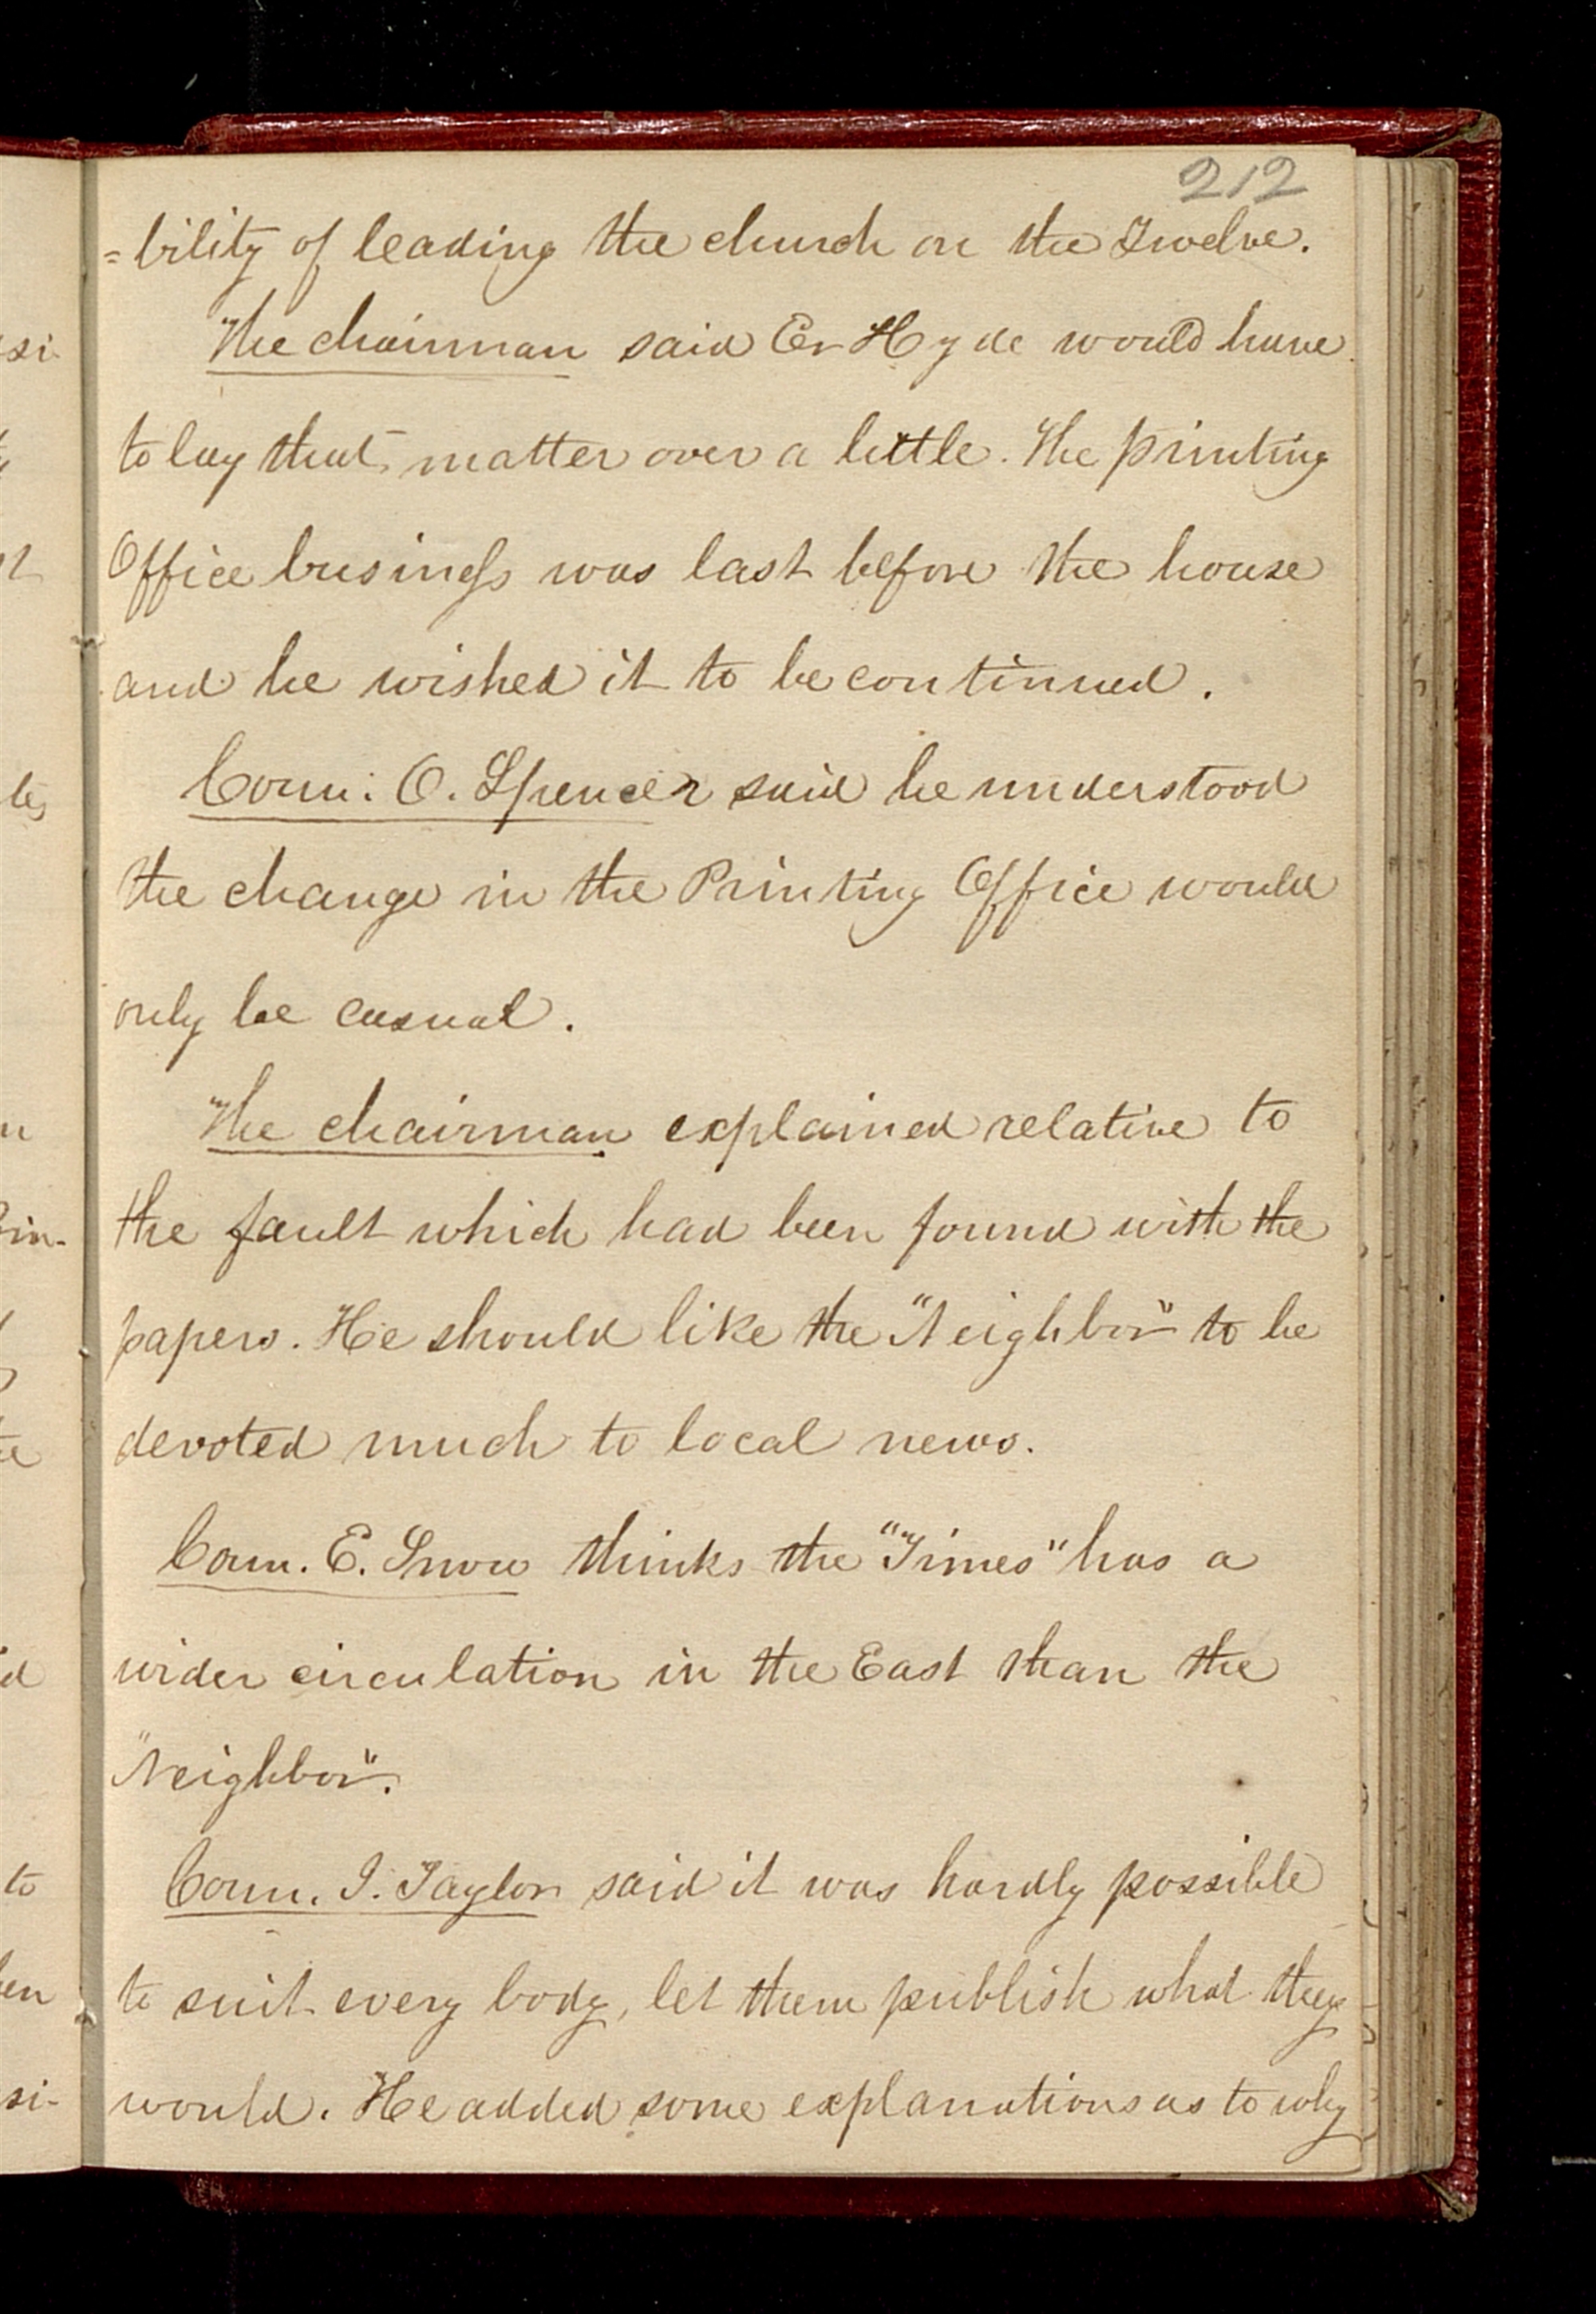 212
=bility of leading the church on the Twelve.
The chairman said Er Hyde would have
to lay that matter over a little. The printing
Office business was last before the house
and he wished it to be continued.
Coun: O. Spencer said he understood
the change in the Printing Office would
only be casual.
The chairman explained relative to
the fault which had been found with the
papers. He should like the "Neighbor" to be
devoted much to local news.
Coun. E. Snow thinks the "Times" has a
wider circulation in the East than the
"Neighbor".
Coun. J. Taylor said it was hardly possible
to suit every body, let them publish what they
would. He added some explanations as to why